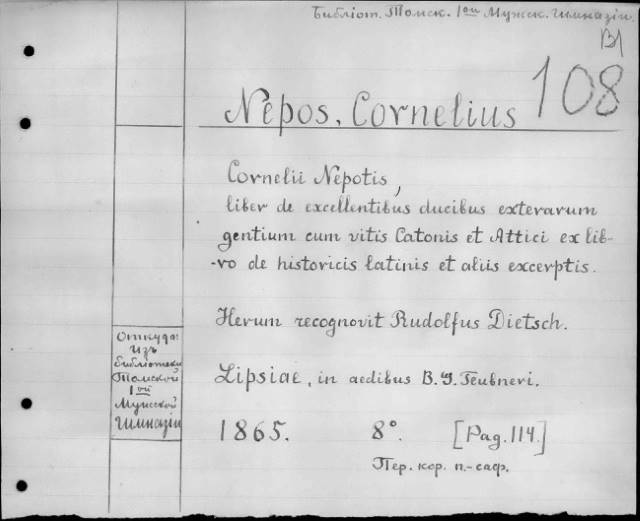 Библіот. Томск. 1ой Мужск. Гимназіи.
В1
108
Nepos, Cornelius
Cornelii Nepotis,
liber de excellentibus ducibus exterarum
gentium cum vitis Catonis et Attici ex lib-
-ro de historicis latinis et aliis excerptis.
Herum recognovit Rudolfus Dietsch.
Lipsiae, in aedibus B. G. Teubneri.
1865. 8°. [Pag. 114.]
Пер. кор. п.-саф.
Откуда:
Изъ
библіотеки
Томской
1ой
Мужской
Гимназіи